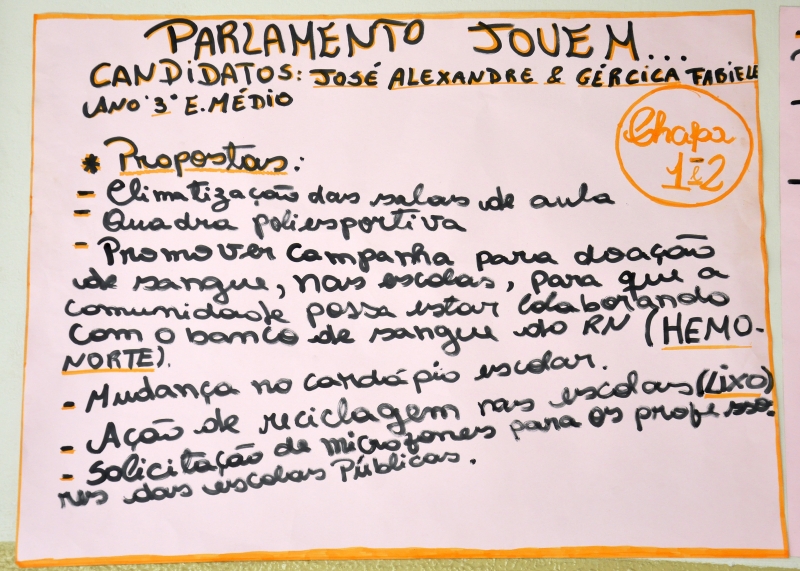 PARLAMENTO JOVEM...
CANDIDATOS: JOSÉ ALEXANDRE & GÉRCICA FABIELE
ANO 3º E.MÉDIO
Chapa
1 & 2
* Propostas:
- Climatização das salas de aula
- Quadra poliesportiva
- Promover campanha para doação
de sangue, nas escolas, para que a
comunidade possa estar colaborando
com o banco de sangue do RN (HEMO-
NORTE).
- Mudança no cardápio escolar.
- Ação de reciclagem nas escolas (LIXO)
- Solicitação de microfones para os professo-
res das escolas Públicas.